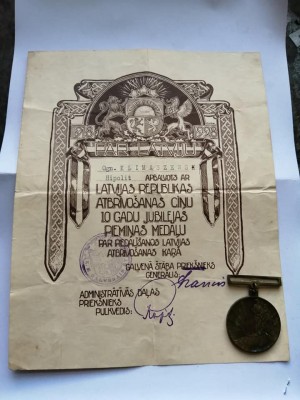 1918 1928
PAR LATVIJU
Hipolit APBALVOTS AR
LATVIJAS REPUBLIKAS
ATBRĪVOŠANAS CĪŅU
10 GADU JUBILEJAS
PIEMIŅAS MEDAĻU
PAR PIEDALĪŠANOS LATVIJAS
ATBRĪVOŠANAS KARĀ
GALVENĀ ŠTĀBA PRIEKŠNIEKS
ĢENERĀLIS
ADMINISTRATĪVĀS DAĻAS
PRIEKŠNIEKS
PULKVEDIS: